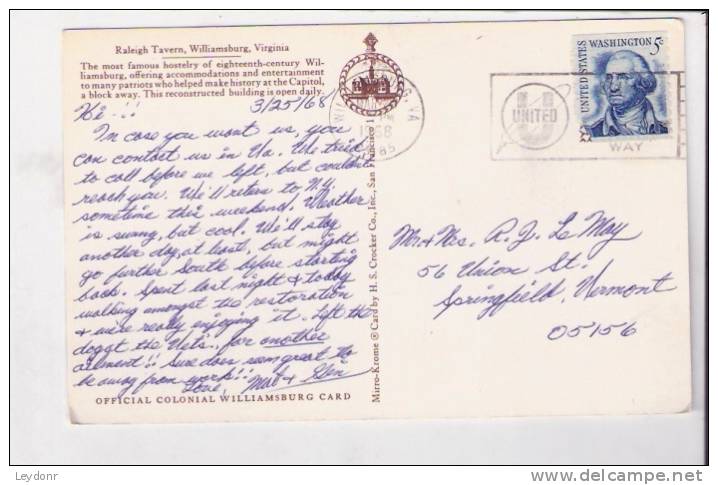 Raleigh Tavern, Williamsburg, Virginia
The most famous hostelry of eighteenth-century Wil-
liamsburg, offering accommodations and entertainment
to many patriots who helped make history at the Capitol,
a block away. This reconstructed building is open daily.
3/25/68
Hi -!!
In case you want us, you
can contact us in Va. We tried
to call before we left, but couldn't
reach you. We'll return to N.Y.
sometime this weekend. Weather
is sunny, but cool. We'll stay
another day, at least, but might
go further South before starting
back. Spent last night & today
walking amongst the restoration
& we're really enjoying it. Left the
dog at the Vet's, for another
!! Sure does seem great to
be away from work!!
Love, &
OFFICIAL COLONIAL WILLIAMSBURG CARD
Mirro-Krome ® Card by H. S. Crocker Co., Inc., San Francisco 1
VA
PM
1968
UNITED
WAY
UNITED STATES
WASHINGTON 5c
Mr & Mrs. R. J. Le May
56 Union St.
Springfield, Vermont
05156
Leydonr
© delcampe.net